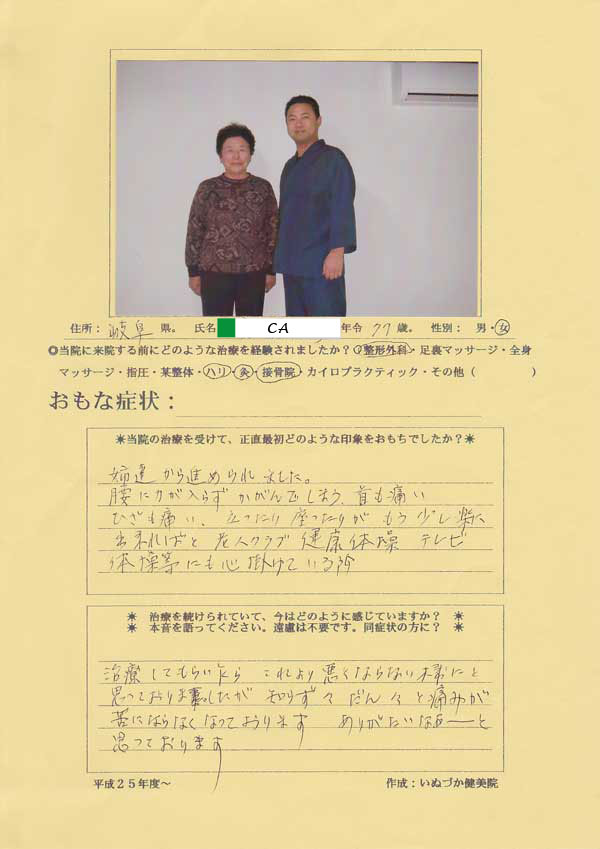 住所： 岐阜 県。 氏名 CA 年令 77 歳。 性別： 男・女
◎当院に来院する前にどのような治療を経験されましたか？（整形外科・足裏マッサージ・全身
マッサージ・指圧・某整体・ハリ・灸・接骨院・カイロプラクティック・その他（ ）
おもな症状：
✴当院の治療を受けて、正直最初どのような印象をおもちでしたか？✴
姉達から進められました。
腰に力が入らず かがんでしまう、首も痛い
ひざも痛い、立ったり座ったりが もう少し楽に
出来ればと 老人クラブ 健康体操 テレビ
体操等にも心掛けている
✴ 治療を続けられていて、今はどのように感じていますか？ ✴
✴ 本音を語ってください。遠慮は不要です。同症状の方に？ ✴
治療してもらいたら これより悪くならない様にと
思っておりましたが 知らず々 だん々と痛みが
苦にならなくなっております ありがたいなぁーと
思っております
平成２５年度～ 作成：いぬづか健美院